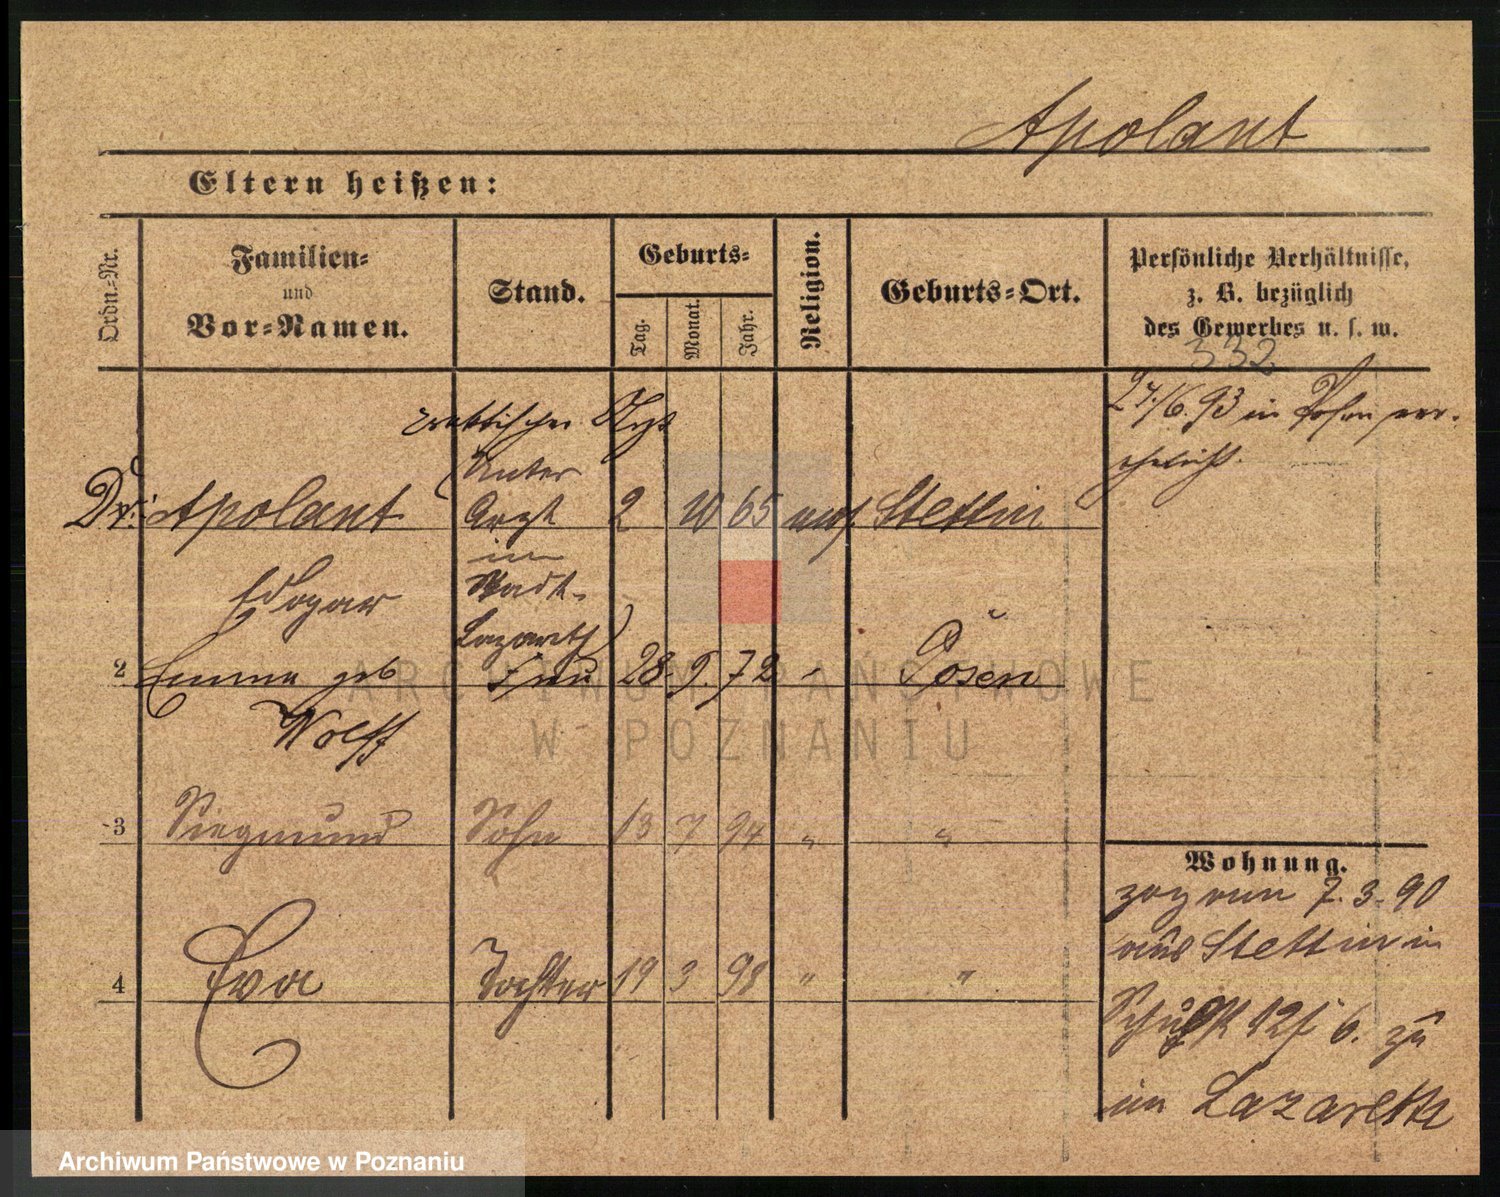 Apolant
Eltern heißen:
Ordn.-Nr.
Familien-
und
Vor-Namen.
Stand.
Geburts-
Tag.
Monat.
Jahr.
Religion.
Geburts-Ort.
Persönliche Verhältnisse,
z. B. bezüglich
des Gewerbes u. s. w.
332
27./6. 93 in Posen ver-
ehelicht.
praktischer Arzt
(Unter
Dr. Apolant Arzt 2 10 65 mos Stettin
im
Edgar Stadt-
Lazareth)
2 Emma geb Frau 28. 9. 72 Posen
Wolff
3 Siegmund Sohn 13 7 94 " "
4 Eva Tochter 19 3 98 " "
Wohnung.
zog am 7. 3. 90
aus Stettin in
Schulst 12 f 6. zu
im Lazareth
ARCHIWUM PAŃSTWOWE
W POZNANIU
Archiwum Państwowe w Poznaniu